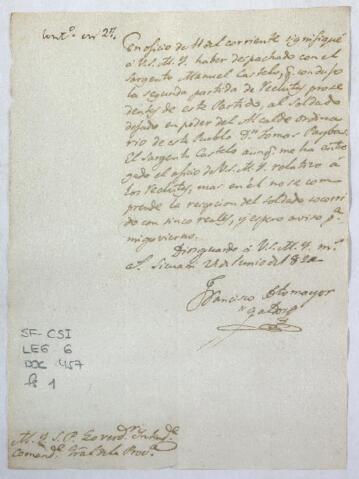 En oficio de 11 del corriente signifiqué
á V.S.M.Y. haber despachado con el
Sargento Manuel Castelo, q. condujo
la segunda partida de reclutas proce
dentes de este Partido, al Soldado
dejado en poder del Alcalde ordina
rio de este Pueblo Dn. Tomas
El Sargento Castelo aunq. me ha entre
gado el oficio de V.S.M.Y. relativo á
los reclutas, mas en el no se com
prende la recepcion del soldado socorri
do con cinco reales, y espero aviso pa.
mi govierno.
Dios guarde á V.S.M.Y. ms.
as. 21 de Junio de
Francisco Sotomayor
SF-CSI
LEG 6
DOC 457
fs 1
M.Y.S.P. Goverdr. Intende.
Comende. Gral. de la Prova.